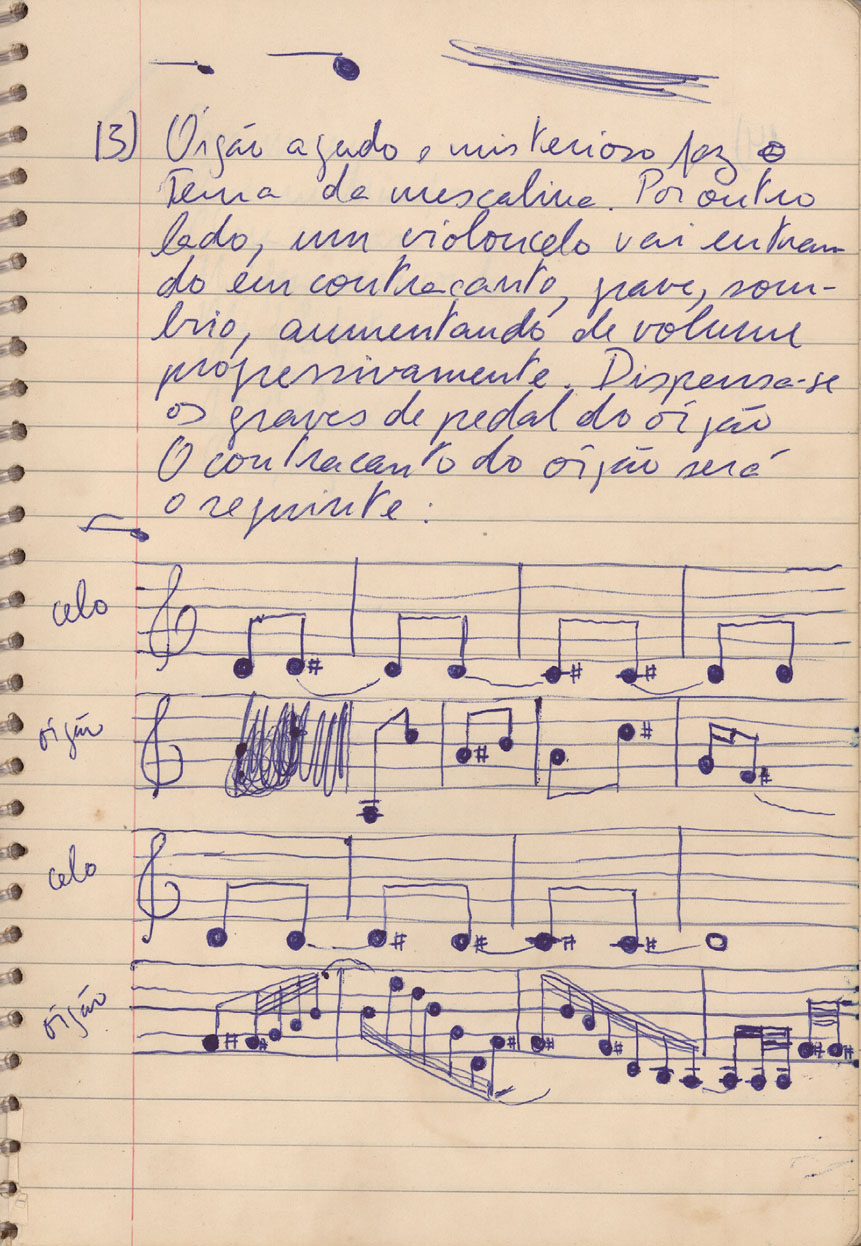 13) Órgão agudo, misterioso faz o
Tema da mescalina. Por outro
lado, um violoncelo vai entran-
do em contracanto, grave, som-
brio, aumentando de volume
progressivamente. Dispensa-se
os graves de pedal do órgão
O contracanto do órgão será
o seguinte:
celo
órgão
celo
órgão